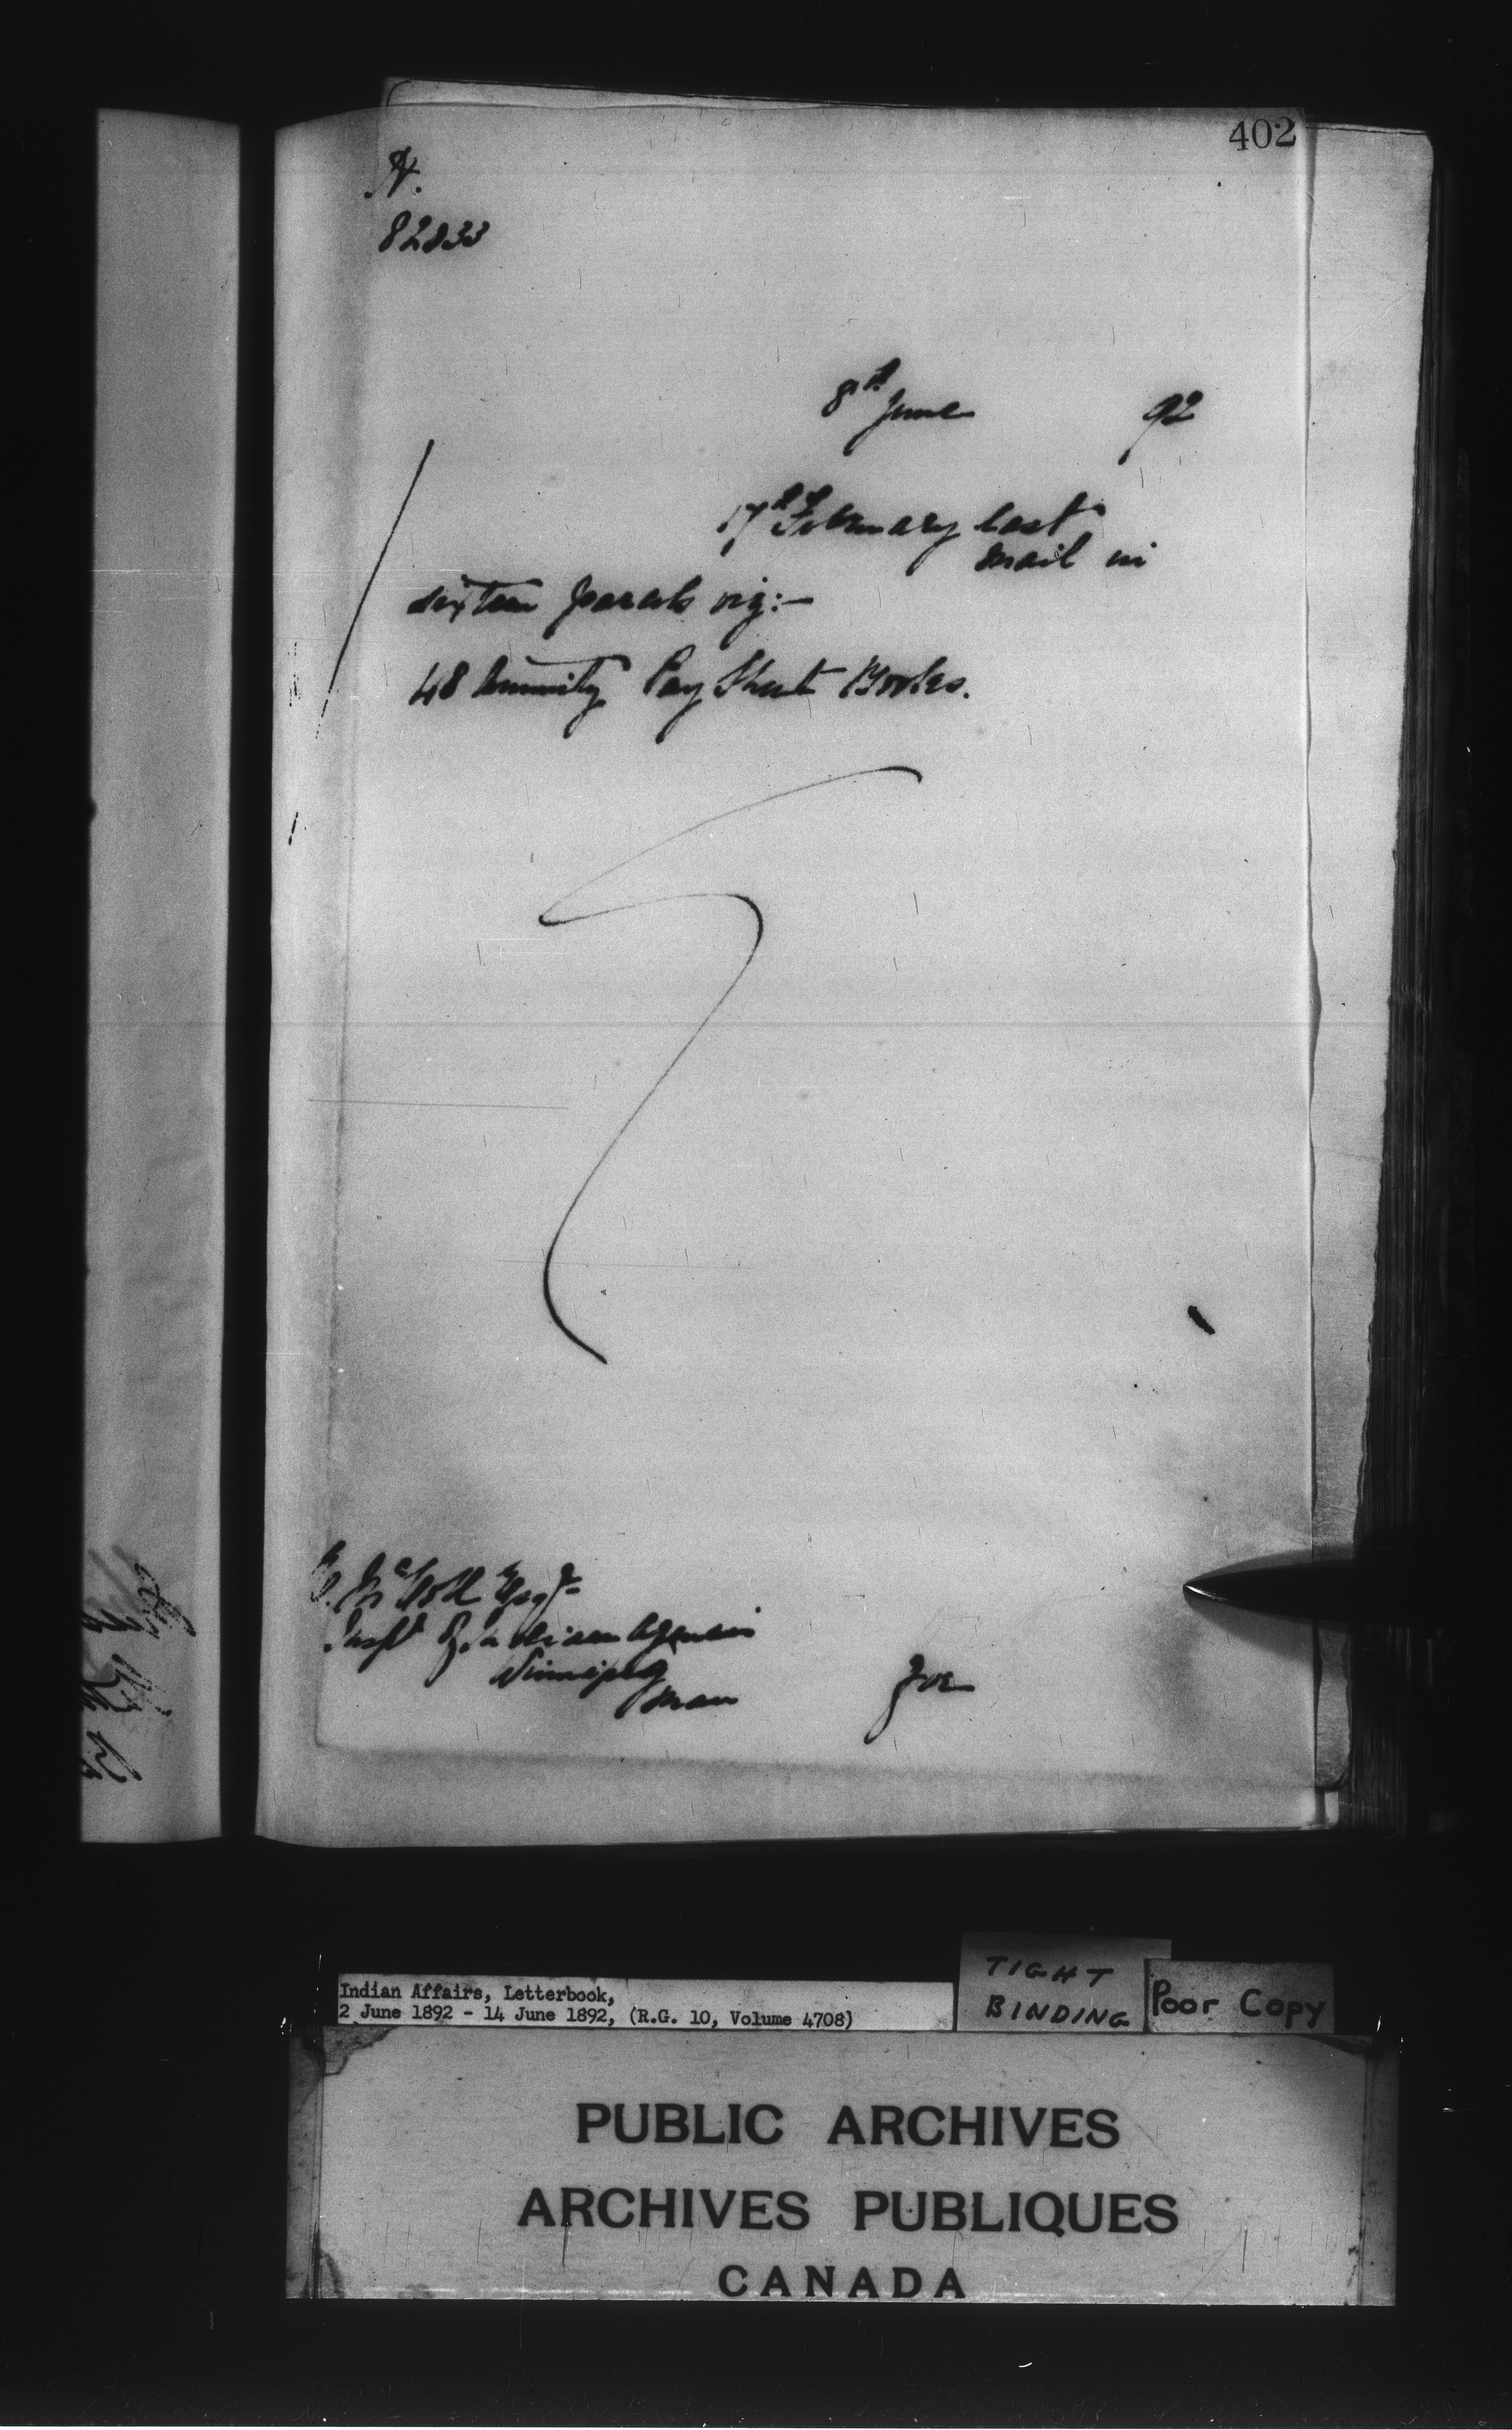 402
A.
82833
8th June 92
17th February last
mail in
sixteen parcels viz:-
48 Annuity Pay Sheet Books.
E. McColl Esqr
Inspr of Indian Agencies
Winnipeg
Man
for
Indian Affairs, Letterbook,
2 June 1892 - 14 June 1892, (R.G. 10, Volume 4708)
TIGHT
BINDING
Poor Copy
PUBLIC ARCHIVES
ARCHIVES PUBLIQUES
CANADA